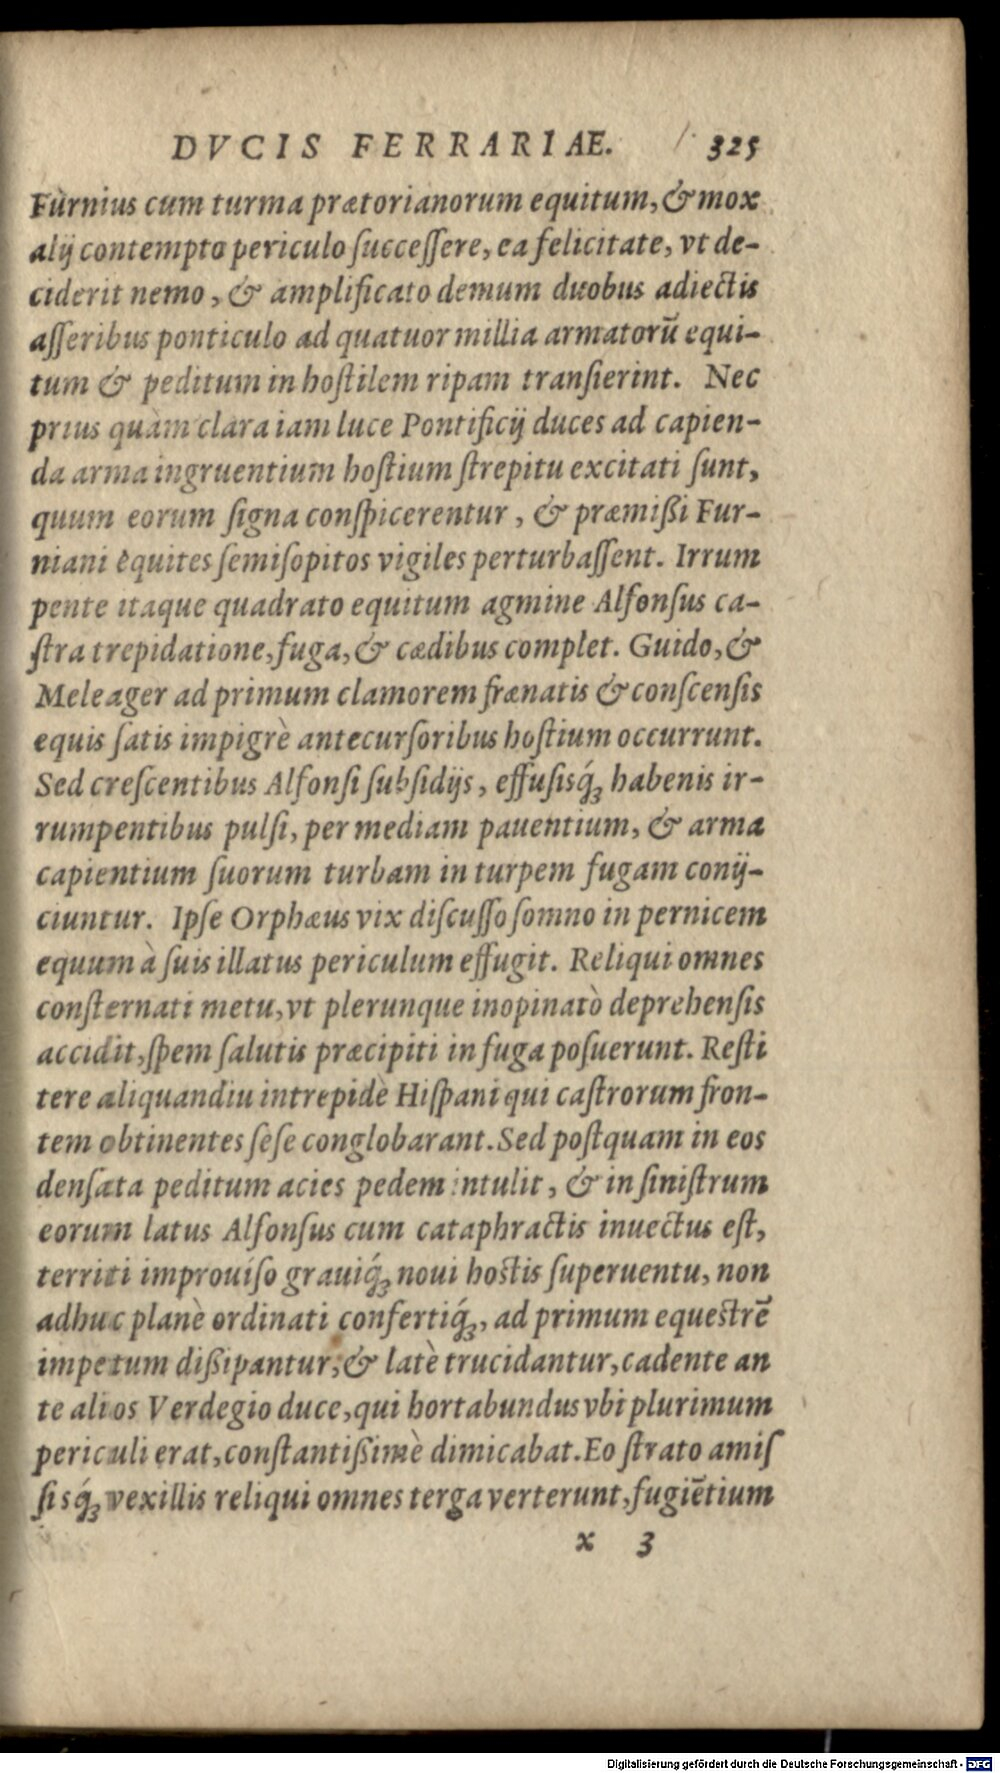 DVCIS FERRARIAE. 325
Furnius cum turma prætorianorum equitum, & mox
alij contempto periculo ſucceſſere, ea felicitate, vt de-
ciderit nemo, & amplificato demum duobus adiectis
aſſeribus ponticulo ad quatuor millia armatorū equi-
tum & peditum in hoſtilem ripam tranſierint. Nec
prius quàm clara iam luce Pontificij duces ad capien-
da arma ingruentium hoſtium ſtrepitu excitati ſunt,
quum eorum ſigna conſpicerentur, & præmißi Fur-
niani equites ſemiſopitos vigiles perturbaſſent. Irrum
pente itaque quadrato equitum agmine Alfonſus ca-
ſtra trepidatione, fuga, & cædibus complet. Guido, &
Meleager ad primum clamorem frænatis & conſcenſis
equis ſatis impigrè antecurſoribus hoſtium occurrunt.
Sed creſcentibus Alfonſi ſubſidijs, effuſisq́ꝫ habenis ir-
rumpentibus pulſi, per mediam pauentium, & arma
capientium ſuorum turbam in turpem fugam conij-
ciuntur. Ipſe Orphæus vix diſcuſſo ſomno in pernicem
equum à ſuis illatus periculum effugit. Reliqui omnes
conſternati metu, vt plerunque inopinatò deprehenſis
accidit, ſpem ſalutis præcipiti in fuga poſuerunt. Reſti
tere aliquandiu intrepidè Hiſpani qui caſtrorum fron-
tem obtinentes ſeſe conglobarant. Sed poſtquam in eos
denſata peditum acies pedem intulit, & in ſiniſtrum
eorum latus Alfonſus cum cataphractis inuectus eſt,
territi improuiſo grauiq́ꝫ noui hoſtis ſuperuentu, non
adhuc planè ordinati confertiq́ꝫ, ad primum equeſtrē
impetum dißipantur, & latè trucidantur, cadente an
te alios Verdegio duce, qui hortabundus vbi plurimum
periculi erat, conſtantißimè dimicabat. Eo ſtrato amiſ
ſisq́ꝫ vexillis reliqui omnes terga verterunt, fugiētium
x 3
Digitalisierung gefördert durch die Deutsche Forschungsgemeinschaft - DFG